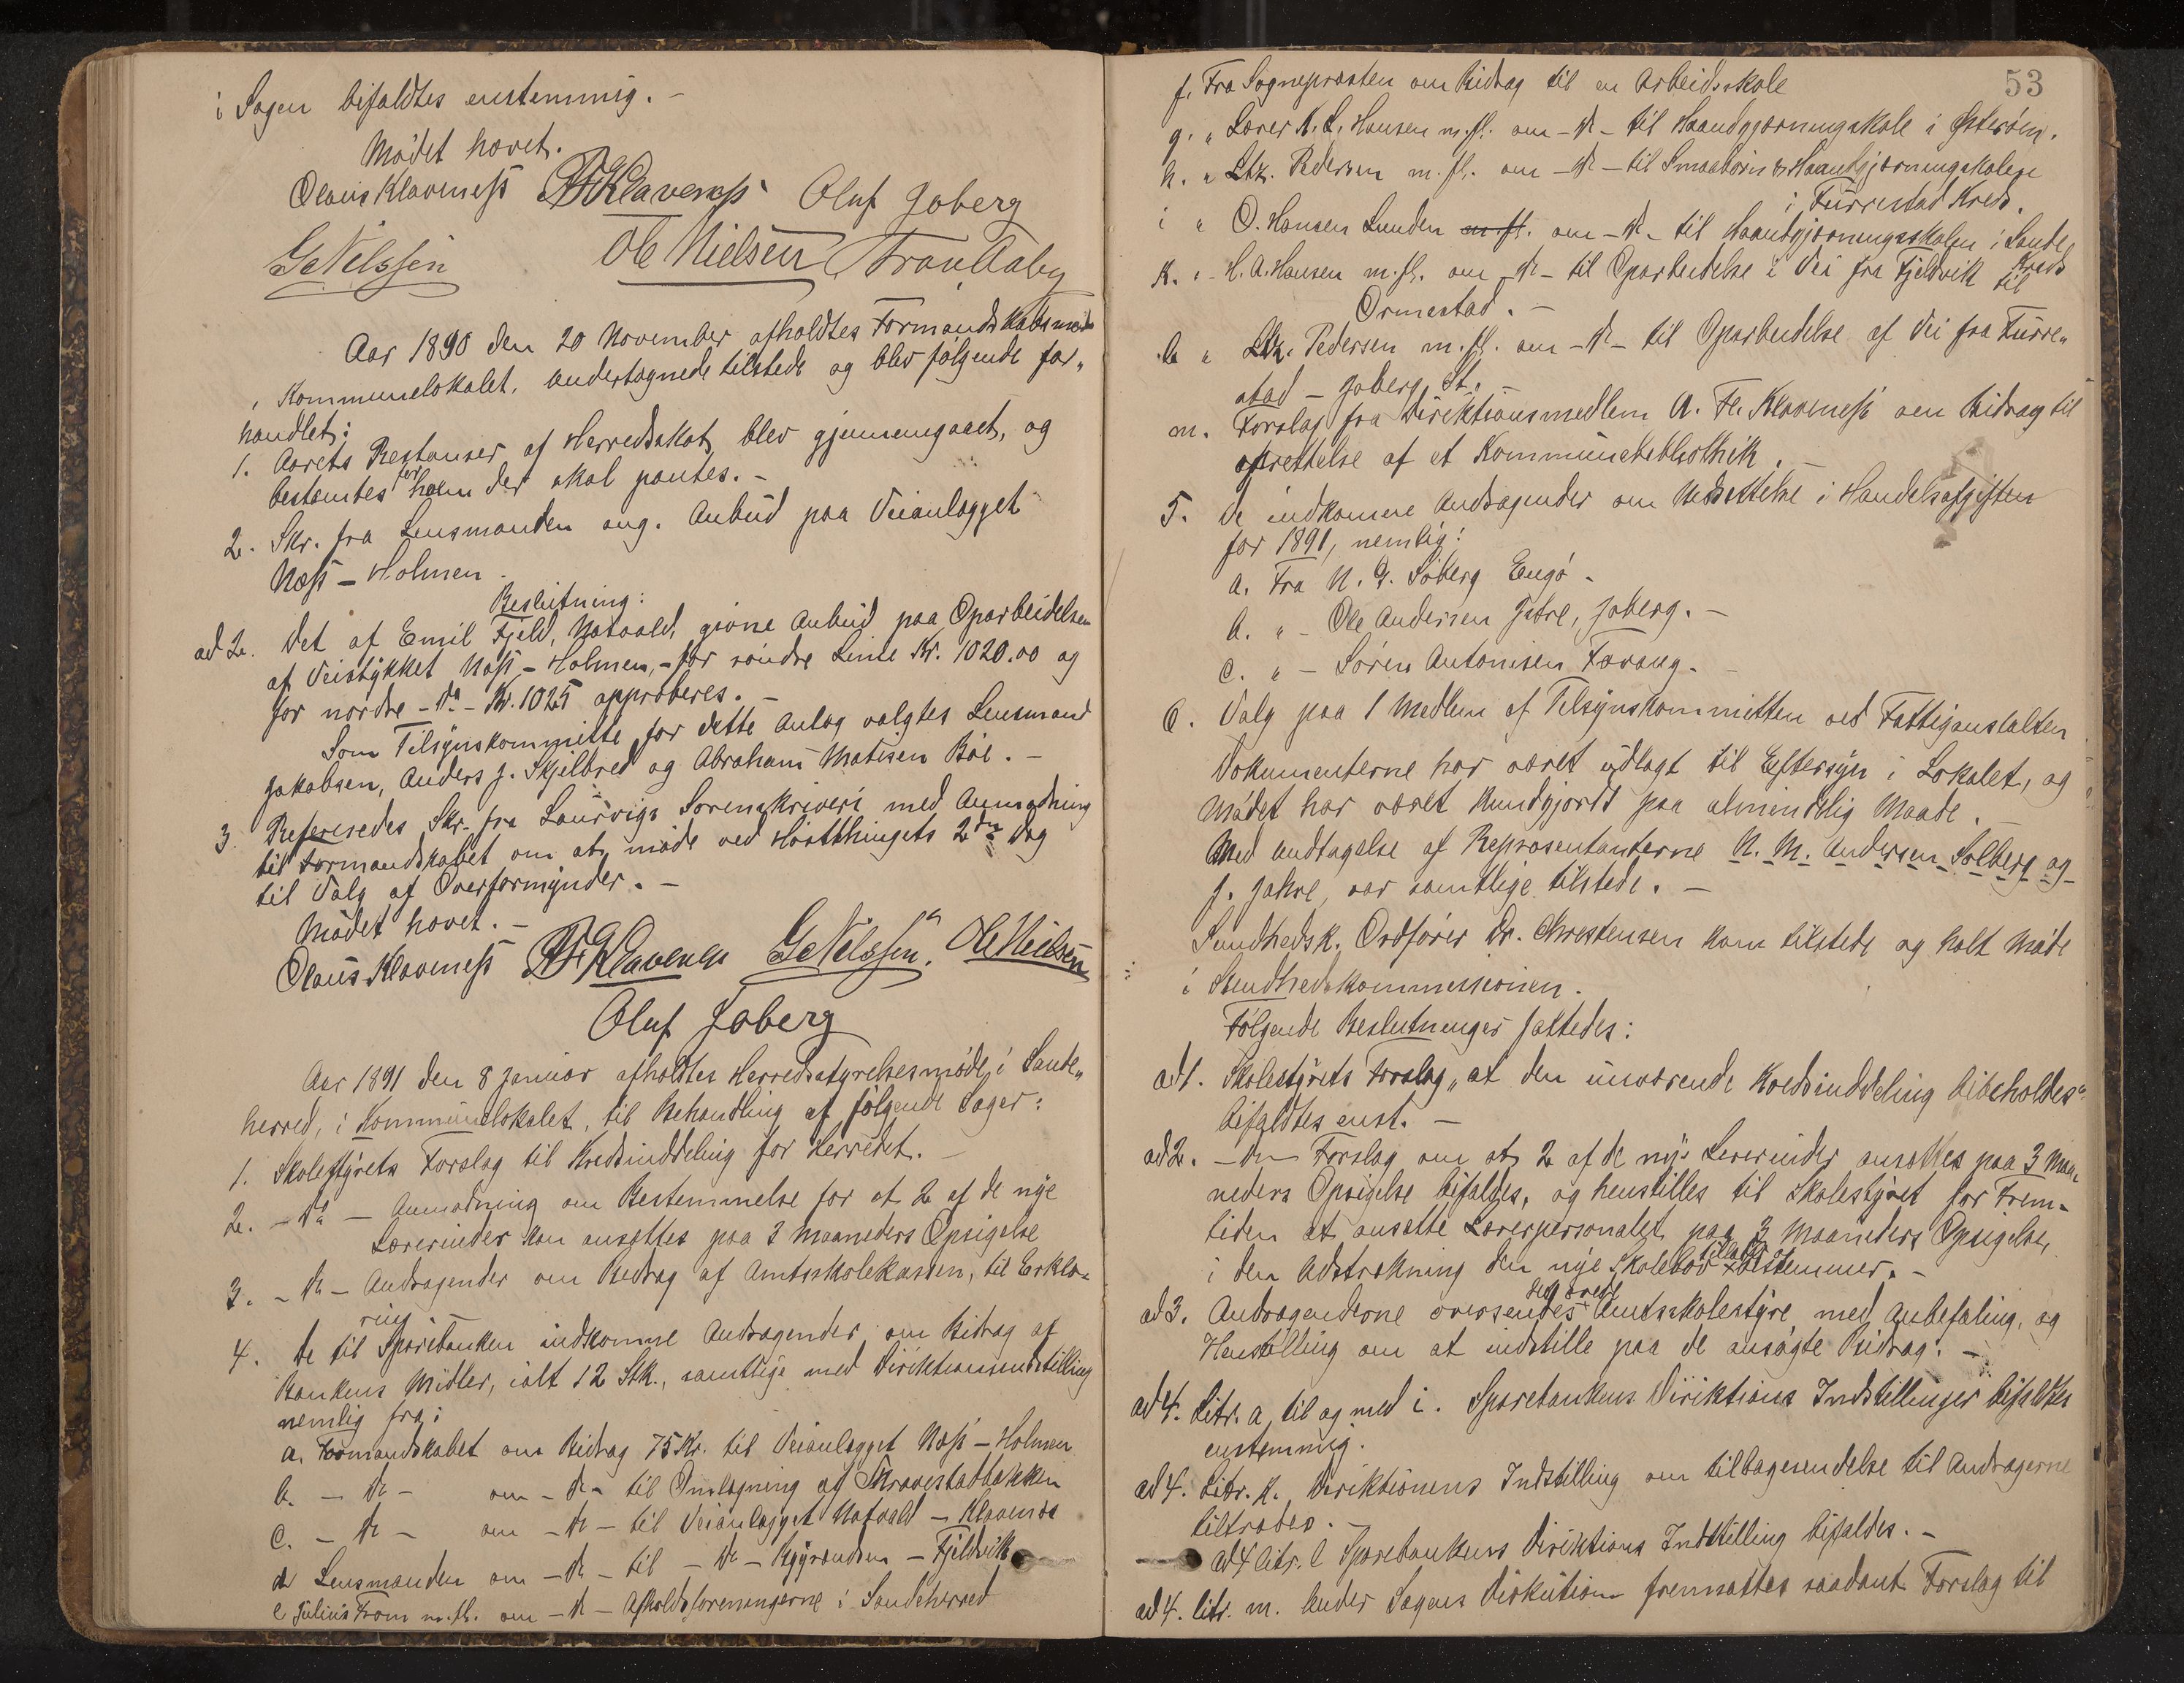 i Sagen bifaldtes enstemmig. –
Mødet hævet.
Olaus Klavenesß A F Klavenesß Oluf Joberg
G Nilssen Ole Nielsen Fran Aaby
Aar 1890 den 20 November afholdtes Formandskabsmøde
i Kommunelokalet. Undertegnede tilstede og blev følgende for„
handlet:
1. Aarets Restanser af Herredsskat blev gjennemgaaet, og
bestemtes for hvem der skal pantes. –
2. Skr. fra Lensmanden ang. Anbud paa Veianlægget
Næß – Holmen.
Beslutning:
ad 2. Det af Emil Fjeld, Natvald, givne Anbud paa Oparbeidelsen
af Veistykket Næß – Holmen, – for søndre Linie Kr. 1020.00 og
for nordre – do – Kr. 1025 approberes. –
Som Tilsynskommitte for dette Anlæg valgtes Lensmand
Jakobsen, Anders J. Skjelbred og Abraham Matisen Bøe. –
3. Refereredes Skr. fra Laurvigs Sorenskriveri med Anmodning
til Formandskabet om at møde ved Høstthingets 2den Dag
til Valg af Overformynder. –
Mødet hævet. –
Olaus Klavenesß A F Klavenesß G Nilssen. Ole Nielsen
Oluf Joberg
Aar 1891 den 8 Januar afholdtes Herredsstyrelsesmøde i Sande„
herred, i Kommunelokalet, til Behandling af følgende Sager:
1. Skolestyrets Forslag til Kredsinddeling for Herredet. –
2. – do – Anmodning om Bestemmelse for at 2 af de nye
Lærerinder kan ansættes paa 3 Maaneders Opsigelse
3. – do – Andragender om Bidrag af Amtsskolekassen, til Erklæ„
ring –
4. De til Sparebanken indkomne Andragender om Bidrag af
Bankens Midler, ialt 12 Stk., samtlige med Direktionsindstilling
nemlig fra:
a. Formandskabet om Bidrag 75 Kr. til Veianlægget Næß – Holmen
b. – do – om – do – til Omlægning af Skravestadbakken
c. – do – om – do – til Veianlægget Natvald – Klavenes
d Lensmanden om – do – til – do – – Fjeldvik
e Julius From m.fl. om – do – Afholdsforeningerne i Sandeherred
53
f. Fra Sognepræsten om Bidrag til en Arbeidsskole
g. „ Lærer A. L. Hansen m.fl. om – do – til Haandgjerningsskole i Østerøen.
h. „ Ltz. Pedersen m.fl. om – do – til Smaabørns & Haandgjerningsskolen
i Furrestad Kreds.
i „ O. Hansen Lunden m.fl. om – do – til Haandgjerningsskolen i Sande
Kreds
k. „ H. A. Hansen m.fl. om – do – til Oparbeidelse i Vei fra Fjeldvik til
Ormestad. –
l. „ Ltz. Pedersen m.fl. om – do – til Oparbeidelse af Vei fra Furre„
stad – Joberg St. –
m. Forslag fra Direktionsmedlem A. Fr. Klavenesß om Bidrag til
oprettelse af et Kommunebibliothek. –
5. De indkomne Andragender om Nedsættelse i Handelsafgiften
for 1891, nemlig:
a. Fra N. G. Søberg Engø –
b. „ – Ole Andersen Jstre, Joberg. –
c. „ – Søren Antonisen Fævang. –
6. Valg paa 1 Medlem af Tilsynskommitten ved Fattiganstalten
Dokumenterne har været udlagt til Eftersyn i Lokalet, og
Mødet har været kundgjordt paa almindelig Maade. –
Med Undtagelse af Repræsentanterne N. M. Andersen Solberg og
J. Jahre, var samtlige tilstede. –
Sundhedsk. Ordfører Dr. Chrestensen kom tilstede og holt Møde
i Sundhedskommissionen.
Følgende Beslutninger fattedes:
ad 1. Skolestyrets Forslag „at den nuværende Kredsinddeling bibeholdes“
bifaldtes enst. –
ad 2. – do – Forslag om at 2 af de nye Lererinder ansættes paa 3 Maa„
neders Opsigelse bifaldes, og henstilles til Skolestyret for Frem„
tiden at ansætte Lærerpersonalet paa 3 Maaneders Opsigelse,
i den Udstrækning den nye Skolelov tillader & bestemmer. –
ad 3. Andragenderne oversendes det ærede Amtsskolestyre, med Anbefaling, og
Henstilling om at indstille paa de ansøgte Bidrag. –
ad 4. Litr. a, til og med i. Sparebankens Direktions Indstillinger bifaldtes
enstemmig.
ad 4. Litr. k. Direktionens Indstilling om tilbagesendelse til Andragerne
tiltrædes. –
ad 4 litr. l Sparebankens Direktions Indstilling bifaldes. –
ad 4. litr. m. Under Sagens Diskution fremsattes saadant Forslag til